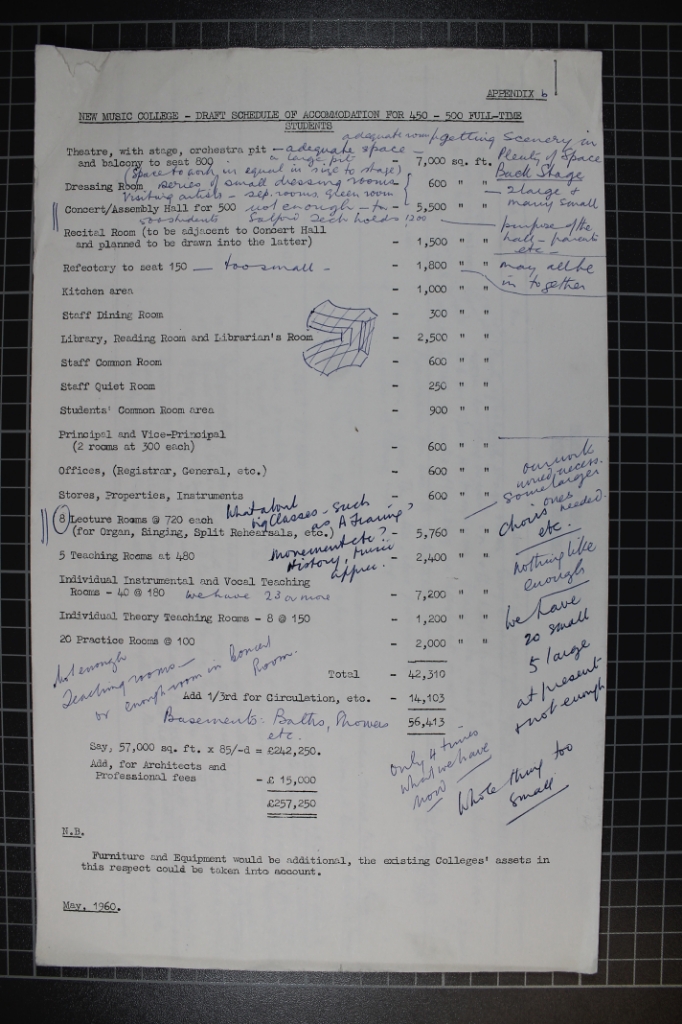 APPENDIX 6
NEW MUSIC COLLEGE - DRAFT SCHEDULE OF ACCOMMODATION FOR 450 - 500 FULL-TIME
STUDENTS
adequate room/getting scenery in
Theatre, with stage, orchestra pit - adequate space -
a large pit
and balcony to seat 800 - 7,000 sq. ft.
Plenty of Space
Back Stage
(Space to work in equal in size to stage)
Dressing Room series of small dressing rooms - 600 " "
- 2 large & many small
Visiting artists - sep. rooms, green room
Concert/Assembly Hall for 500 not enough - for - 5,500 " "
500 students Salford Tech holds 1200
purpose of the
hall - parents
etc -
Recital Room (to be adjacent to Concert Hall
and planned to be drawn into the latter) - 1,500 " "
Refectory to seat 150 - too small - - 1,800 " "
may all be
in together
Kitchen area - 1,000 " "
Staff Dining Room - 300 " "
Library, Reading Room and Librarian's Room - 2,500 " "
Staff Common Room - 600 " "
Staff Quiet Room - 250 " "
Students' Common Room area - 900 " "
Principal and Vice-Principal
(2 rooms at 300 each) - 600 " "
Offices, (Registrar, General, etc.) - 600 " "
Stores, Properties, Instruments - 600 " "
our work
some larger
ones
needed.
choirs
etc.
What about
big classes - such
as A Training?
8 Lecture Rooms @ 720 each
(for Organ, Singing, Split Rehearsals, etc.) - 5,760 " "
movement etc?
History, music
apprec.
5 Teaching Rooms at 480 - 2,400 " "
nothing like
enough
Individual Instrumental and Vocal Teaching
Rooms - 40 @ 180 we have 23 or more - 7,200 " "
Individual Theory Teaching Rooms - 8 @ 150 - 1,200 " "
20 Practice Rooms @ 100 - 2,000 " "
we have
20 small
5 large
at present
& not enough
Not enough
Teaching rooms -
or enough room in Concert
Room.
Total - 42,310
Add 1/3rd for Circulation, etc. - 14,103
56,413
Basements: Baths,
etc.
Say, 57,000 sq. ft. x 85/-d = £242,250.
Add, for Architects and
Professional fees - £ 15,000
£257,250
only 4 times
what we have
now
Whole thing too
small
N.B.
Furniture and Equipment would be additional, the existing Colleges' assets in
this respect could be taken into account.
May, 1960.